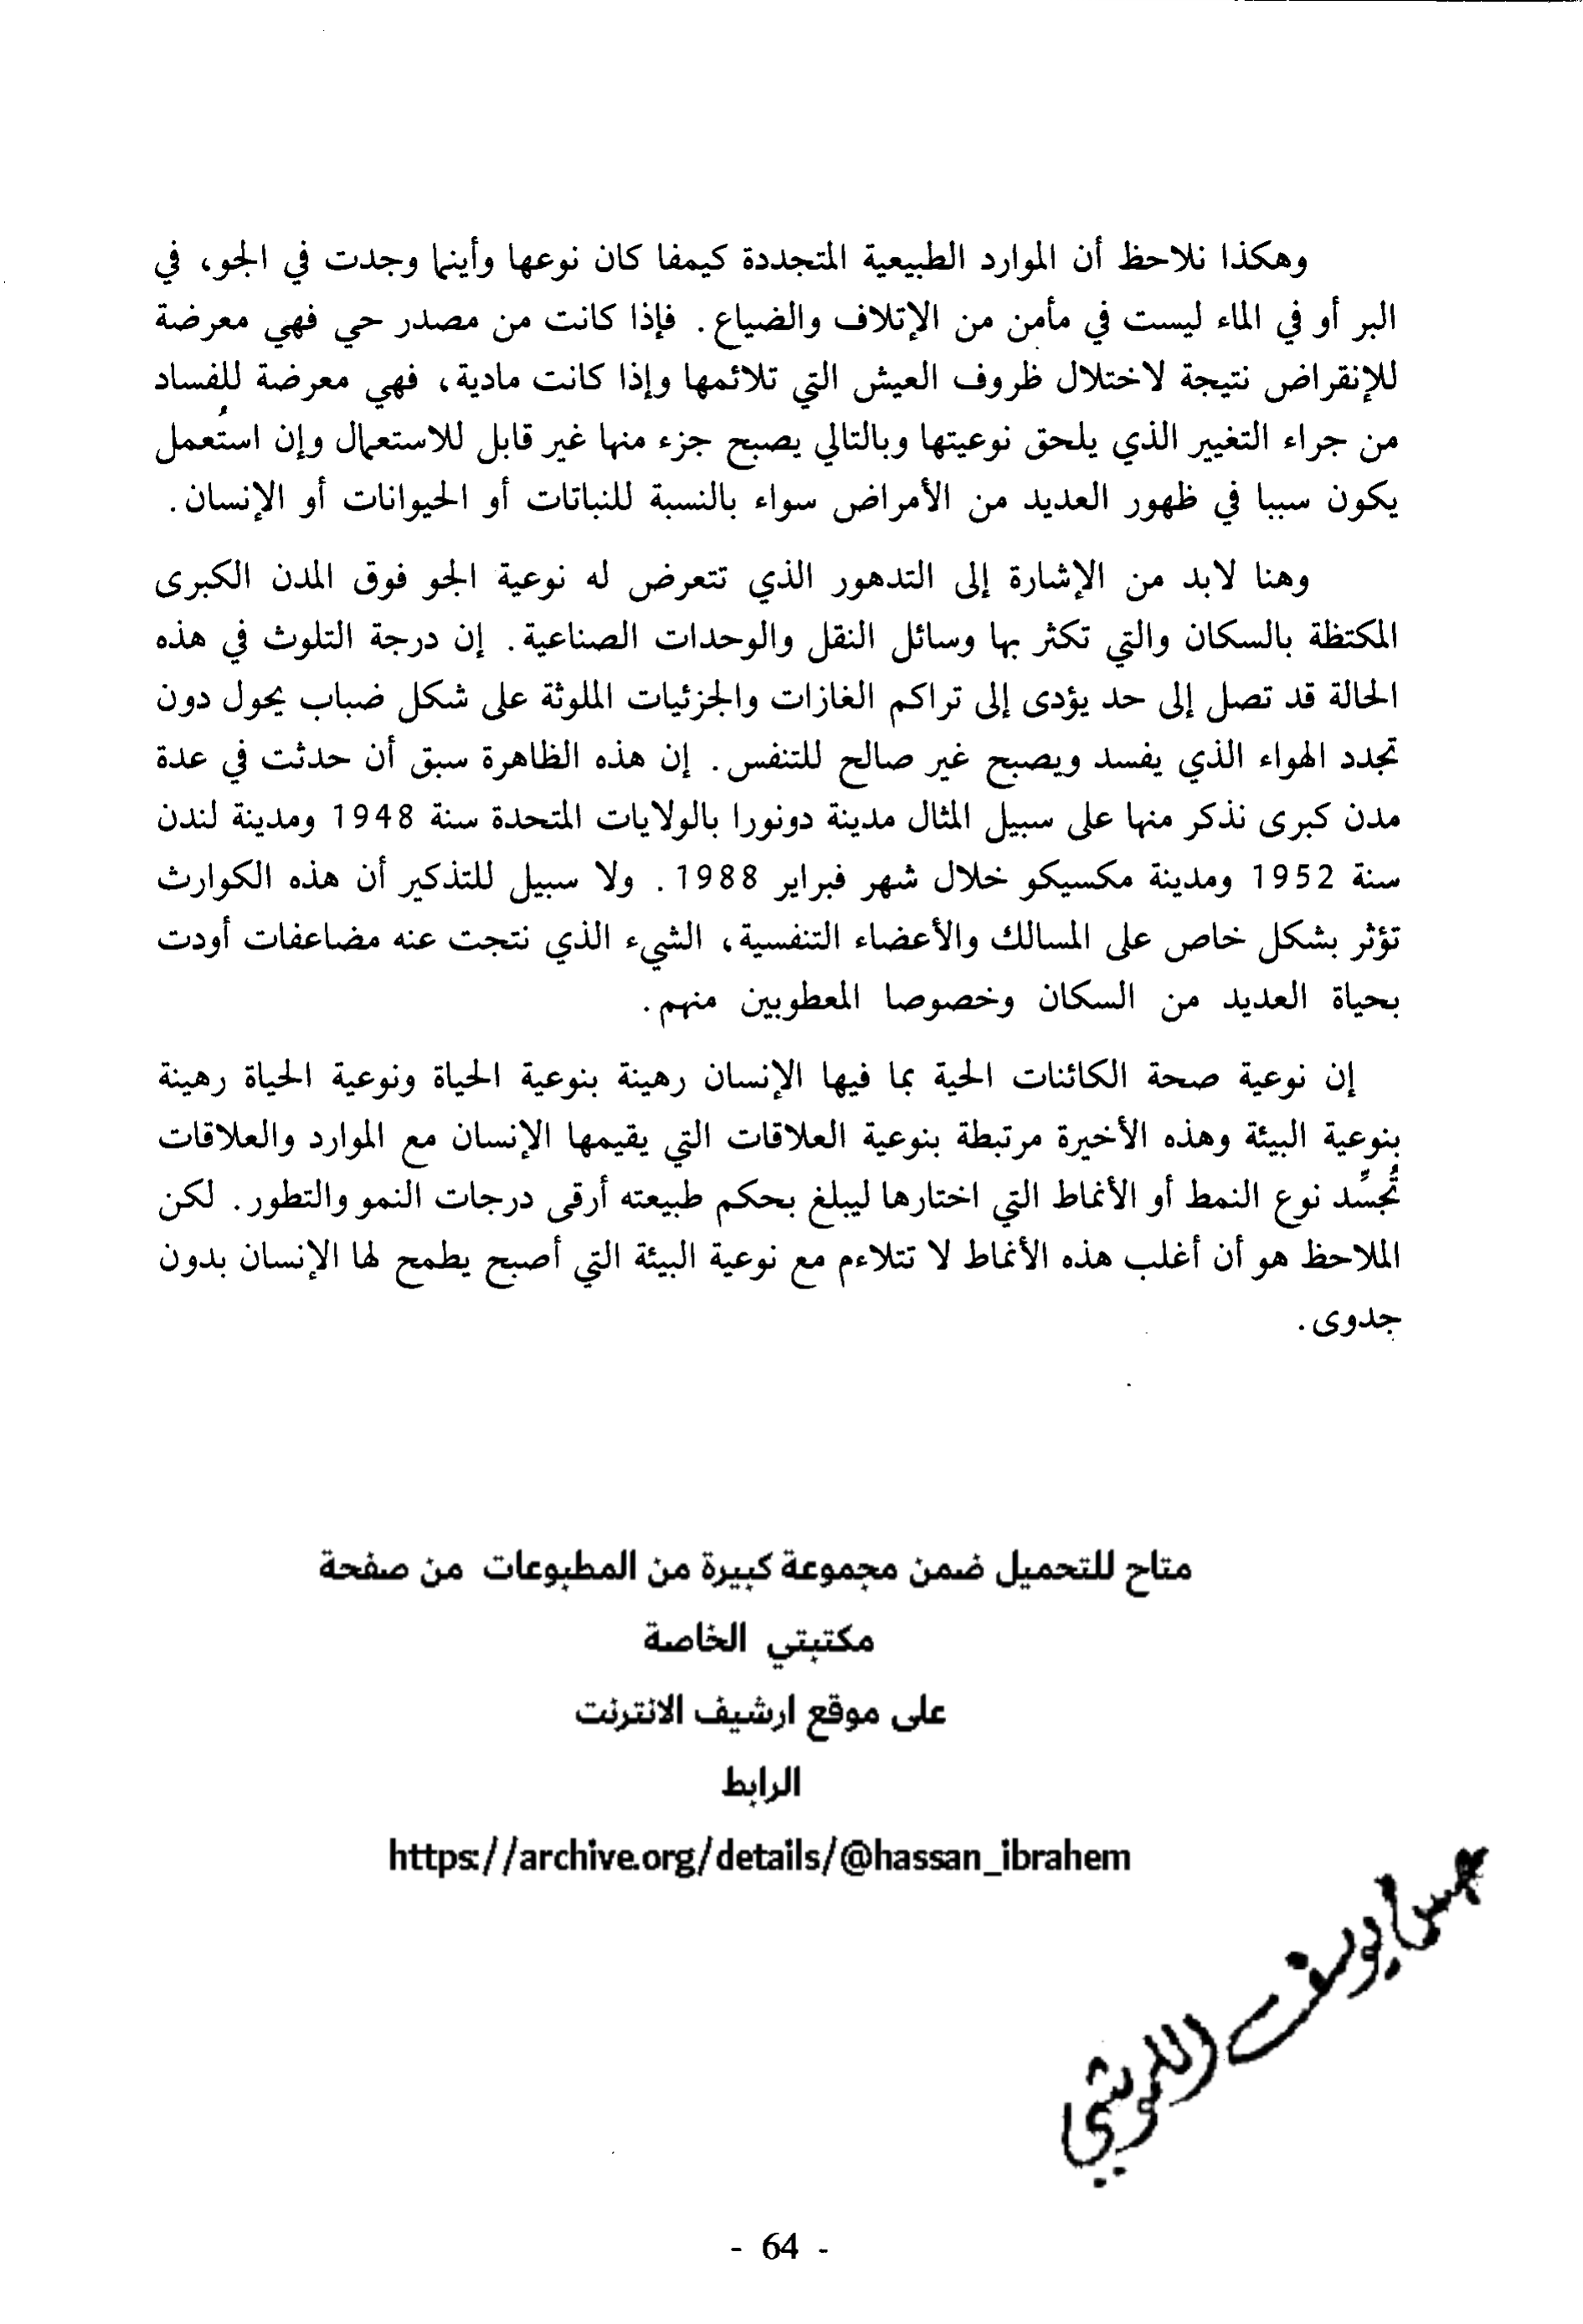 وهكذا نلاحظ أن الموارد الطبيعية المتجددة كيمفا كان نوعها وأينما وجدت في الجو، في
البر أو في الماء ليست في مأمن من الإتلاف والضياع. فإذا كانت من مصدر حي فهي معرضة
للإنقراض نتيجة لاختلال ظروف العيش التي تلائمها وإذا كانت مادية، فهي معرضة للفساد
من جراء التغيير الذي يلحق نوعيتها وبالتالي يصبح جزء منها غير قابل للاستعمال وإن استُعمل
يكون سببا في ظهور العديد من الأمراض سواء بالنسبة للنباتات أو الحيوانات أو الإنسان.
وهنا لابد من الإشارة إلى التدهور الذي تتعرض له نوعية الجو فوق المدن الكبرى
المكتظة بالسكان والتي تكثر بها وسائل النقل والوحدات الصناعية. إن درجة التلوث في هذه
الحالة قد تصل إلى حد يؤدى إلى تراكم الغازات والجزئيات الملوثة على شكل ضباب يحول دون
تجدد الهواء الذي يفسد ويصبح غير صالح للتنفس. إن هذه الظاهرة سبق أن حدثت في عدة
مدن كبرى نذكر منها على سبيل المثال مدينة دونورا بالولايات المتحدة سنة 1948 ومدينة لندن
سنة 1952 ومدينة مكسيكو خلال شهر فبراير 1988. ولا سبيل للتذكير أن هذه الكوارث
تؤثر بشكل خاص على المسالك والأعضاء التنفسية، الشيء الذي نتجت عنه مضاعفات أودت
بحياة العديد من السكان وخصوصا المعطوبين منهم.
إن نوعية صحة الكائنات الحية بما فيها الإنسان رهينة بنوعية الحياة ونوعية الحياة رهينة
بنوعية البيئة وهذه الأخيرة مرتبطة بنوعية العلاقات التي يقيمها الإنسان مع الموارد والعلاقات
تُجسِّد نوع النمط أو الأنماط التي اختارها ليبلغ بحكم طبيعته أرقى درجات النمو والتطور. لكن
الملاحظ هو أن أغلب هذه الأنماط لا تتلاءم مع نوعية البيئة التي أصبح يطمح لها الإنسان بدون
جدوى.
متاح للتحميل ضمن مجموعة كبيرة من المطبوعات من صفحة
مكتبتي الخاصة
على موقع ارشيف الانترنت
الرابط
https://archive.org/details/@hassan_ibrahem
- 64 -